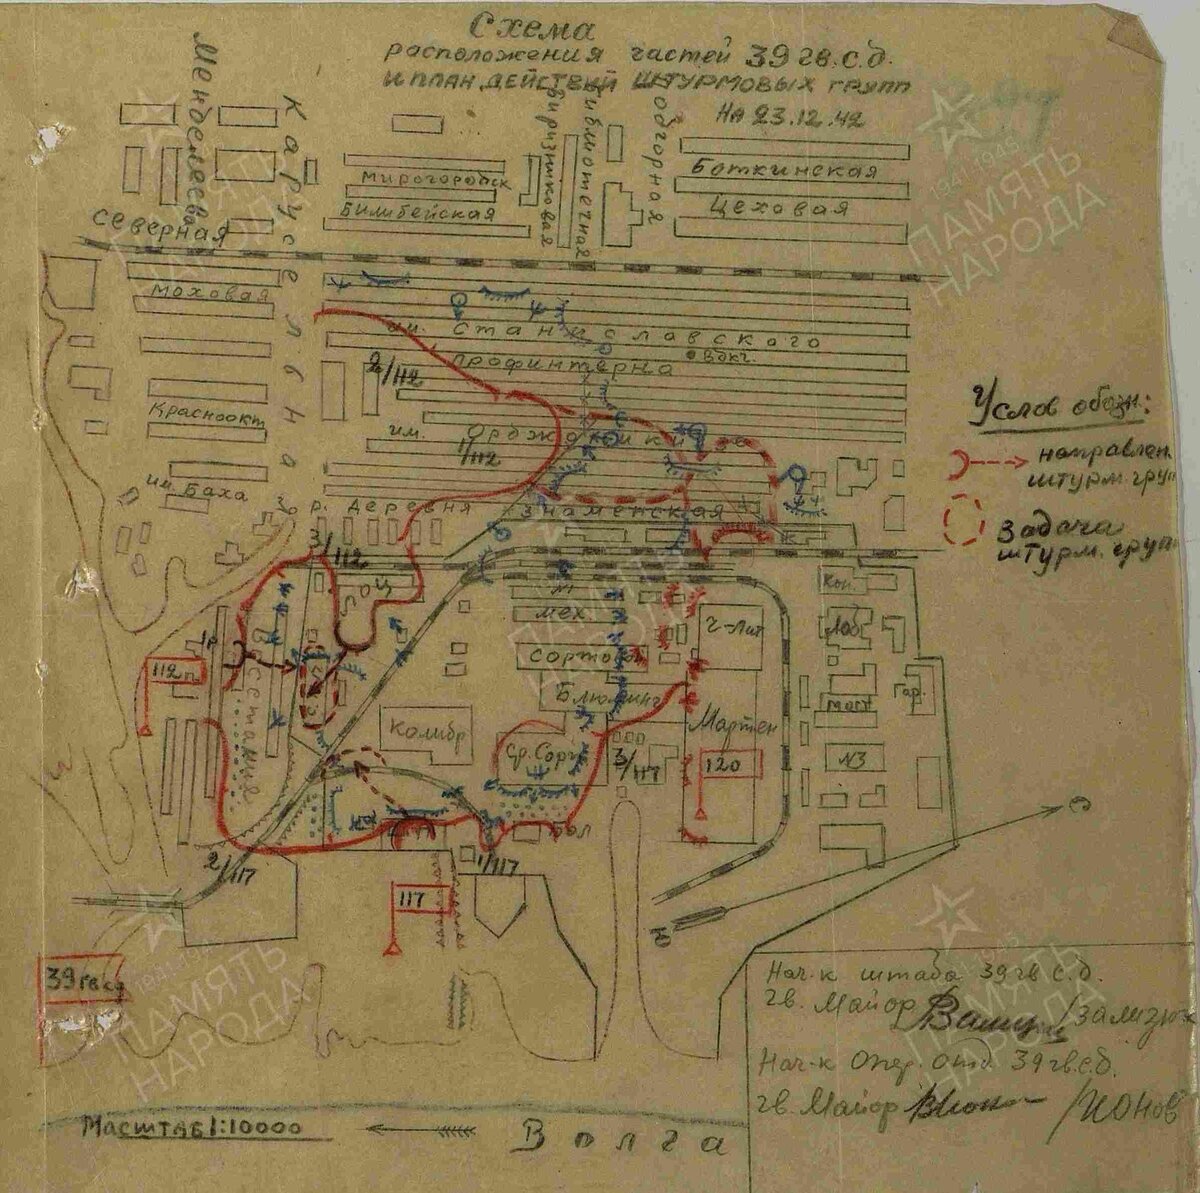 Схема
расположения частей 39 гв.с.д.
и план действий штурмовых групп
на 23.12.42
Менделеева
Карусельная
Северная
Миргородск
Билибейская
Бибмотечная
Подгорная
Боткинская
Цеховая
Моховая
им. Станиславского
Профинтерна
2/112
Красноокт
им. Орджоникидзе
1/112
им. Баха
р. Деревня
Знаменская
3/112
Условн обозн:
направлен.
штурм. груп
Задача
штурм. груп
мех
Сорто
Блюминг
Ср. Сорт
Калибр
Мартен
Кон.
Лаб
Гар.
№3
112 п
120
3/117
2/117
1/117
117
39 гв сд
С
Ю
Нач-к штаба 39 гв с.д.
гв. Майор /Зализюк
Нач-к Опер. отд 39 гв.с.д.
гв. Майор /Ионов
Масштаб 1:10000
Волга
1941-1945
ПАМЯТЬ
НАРОДА